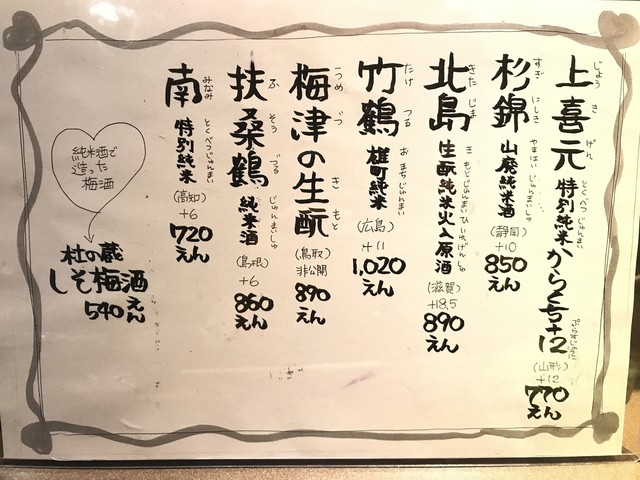 上喜元 特別純米 からくち+12
じょうきげん とくべつじゅんまい ぷらすじゅうに
(山形)
+12
770
えん
杉錦 山廃純米酒
すぎにしき やまはいじゅんまいしゅ
(静岡)
+10
850
えん
北島 生酛純米火入原酒
きたじま きもとじゅんまいひいれげんしゅ
(滋賀)
+18.5
890
えん
竹鶴 雄町純米
たけつる おまちじゅんまい
(広島)
+11
1,020
えん
梅津の生酛
うめづ きもと
(鳥取)
非公開
890
えん
扶桑鶴 純米酒
ふそうづる じゅんまいしゅ
(島根)
+6
860
えん
南 特別純米
みなみ とくべつじゅんまい
(高知)
+6
720
えん
純米酒で
造った
梅酒
杜の蔵
しそ梅酒
540えん